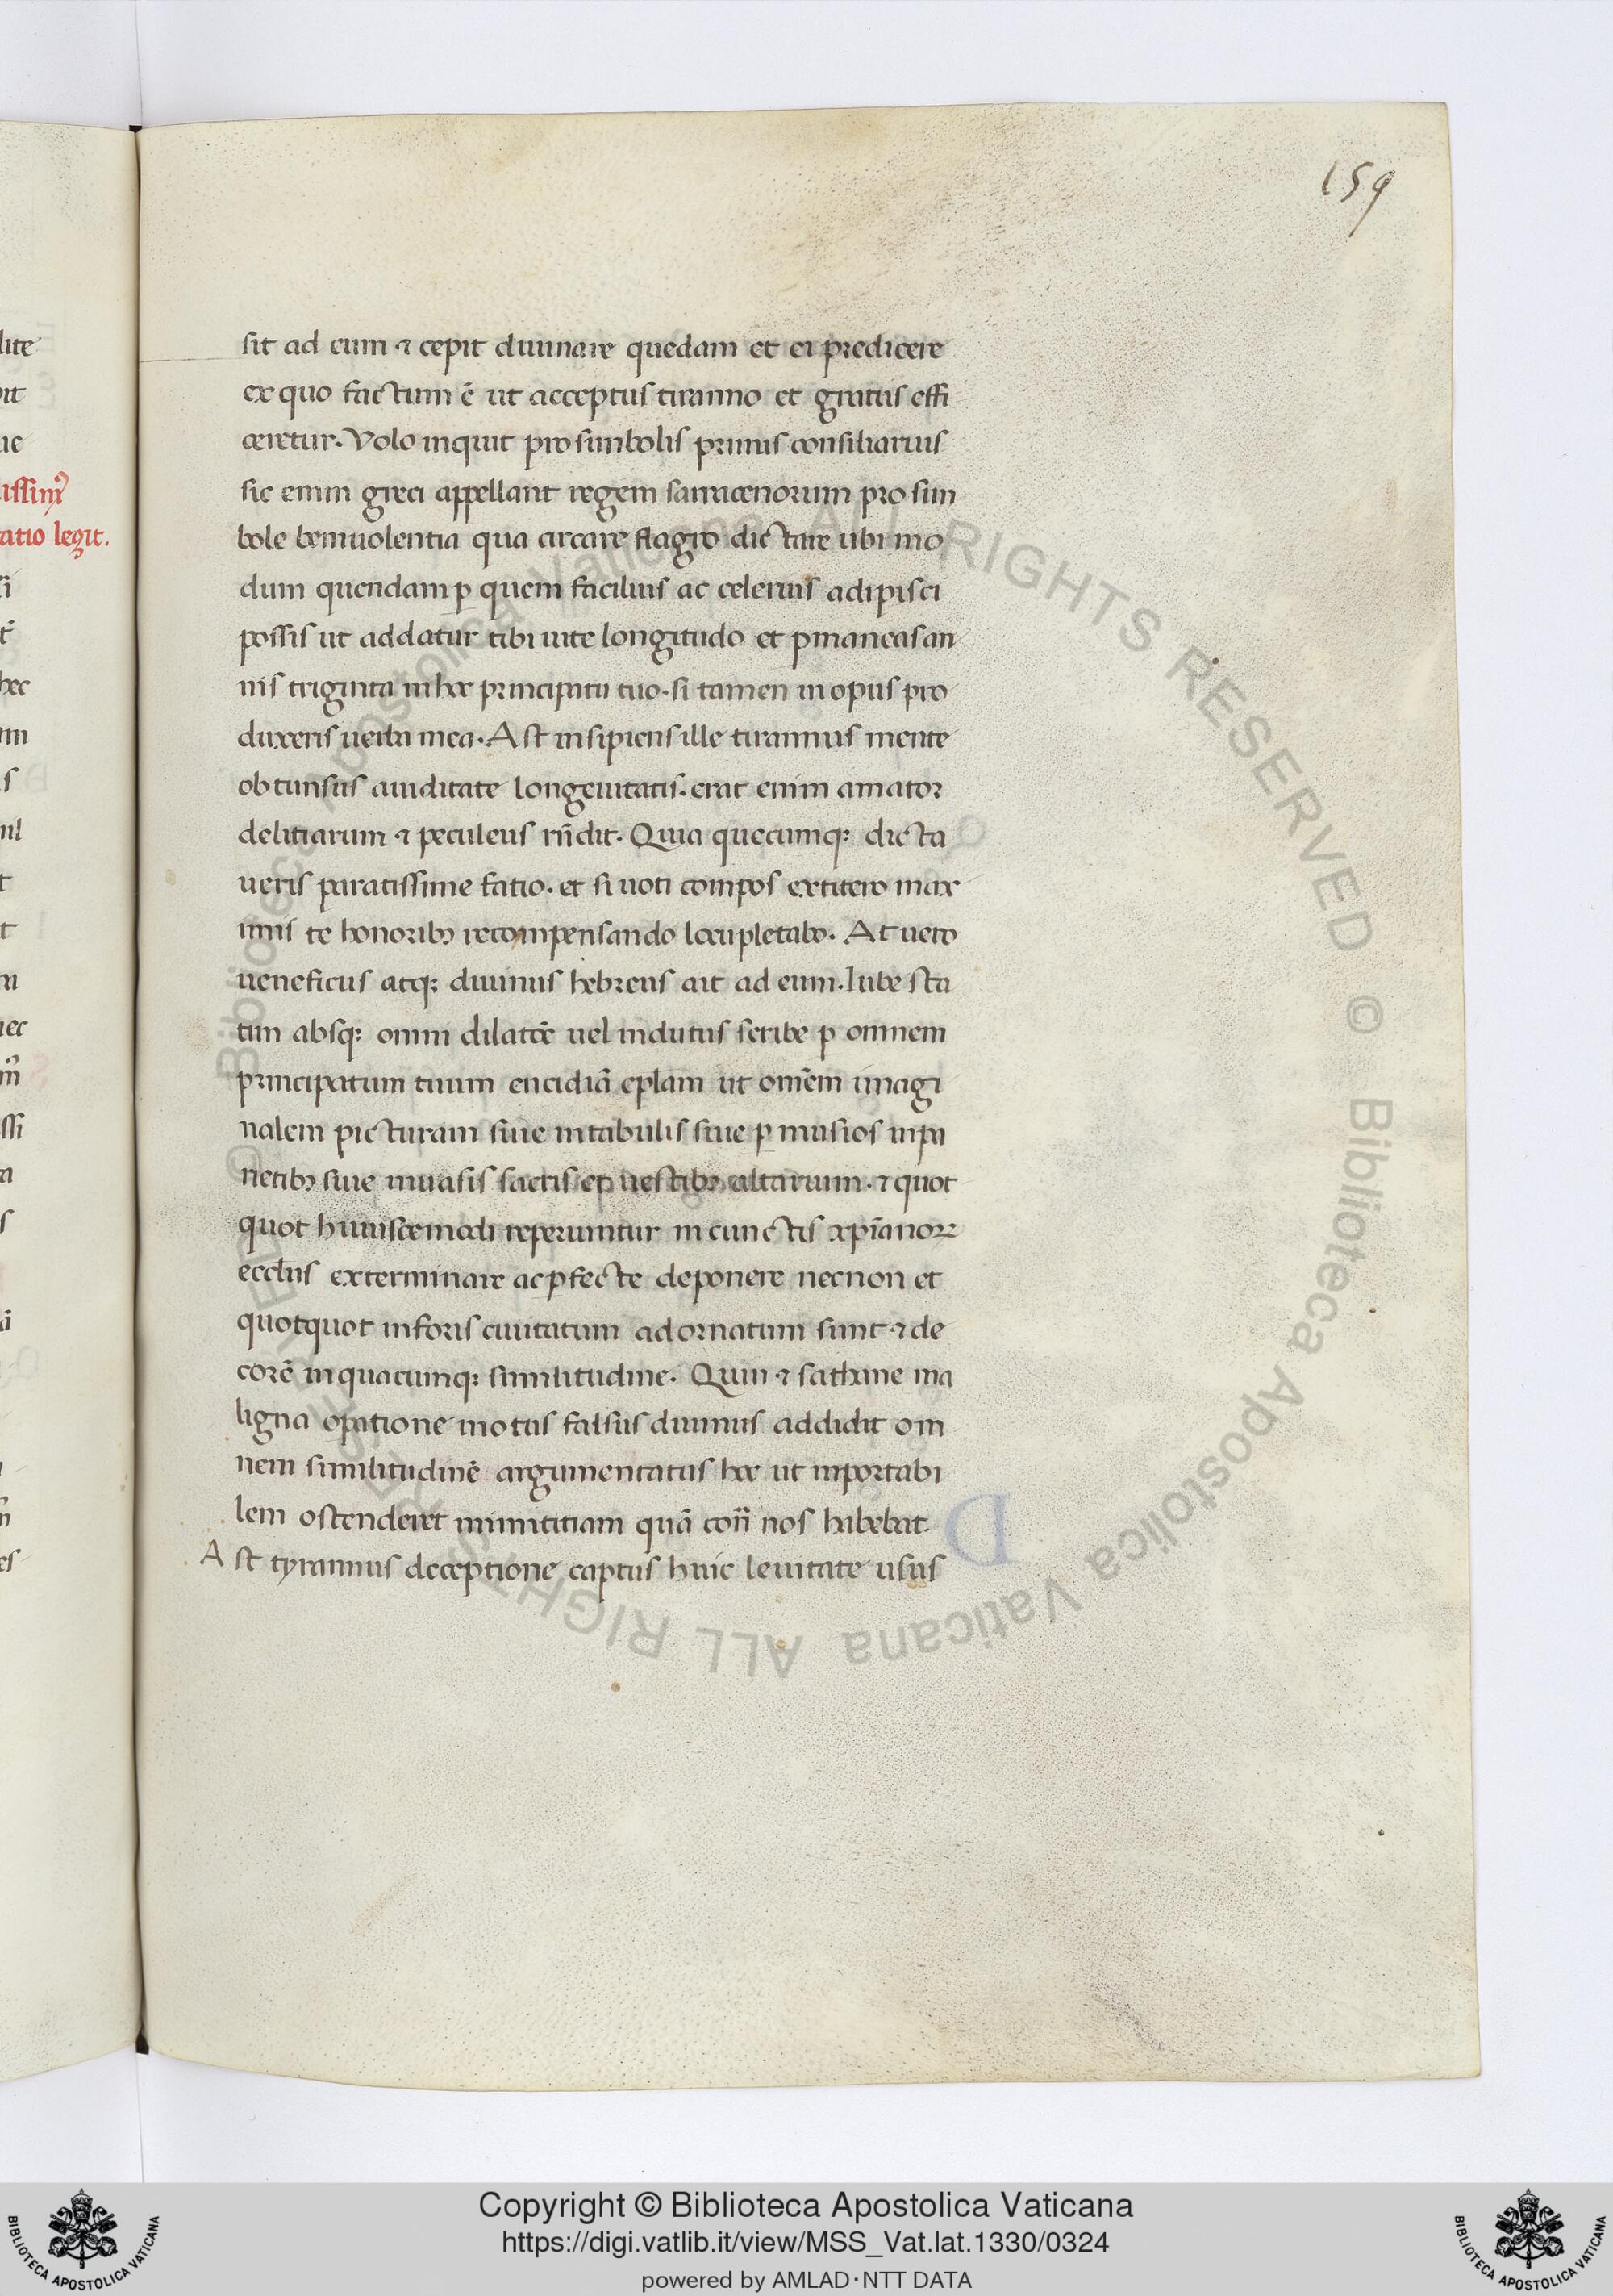 159
lite
it
ue
issim̾
tatio legit.
hec
ssi
sit ad eum ⁊ cepit diuinare quedam et ei predicere
ex quo factum ē ut acceptus tiranno et gratus effi
ceretur. Volo inquit pro simbolis primus consiliarius
sic enim greci appellant regem sarracenorum pro sim
bole beniuolentia qua circa te flagro dictare tibi mo
dum quendam ꝑ quem facilius ac celerius adipisci
possis ut addatur tibi uite longitudo et ꝑmaneas an
nis triginta in hoc principatu tuo. si tamen in opus pro
duxeris uerba mea. Ast insipiens ille tirannus mente
obtunsus auiditate longeuitatis. erat enim amator
delitiarum ⁊ peculeus rn̄dit. Quia quecumq: dicta
ueris paratissime fatio. et si uoti compos extitero max
imis te honoribꝫ recompensando locupletabo. At uero
ueneficus atq: diuinus hebreus ait ad eum. Iube sta
tim absq: omni dilatōe uel indutus scribe ꝑ omnem
principatum tuum encidiā eplam ut omēm imagi
nalem picturam siue in tabulis siue ꝑ musios in pa
rietibꝫ siue in uasis sacris et uestibꝫ altarium. ⁊ quot
quot huiuscemodi reperiuntur in cunctis xp̄ianoꝝ
ecclijs exterminare ac ꝑfecte deponere necnon et
quotquot in foris ciuitatum ad ornatum sunt ⁊ de
corē in quacumq: similitudine. Quin ⁊ sathane ma
ligna oꝑatione motus falsus diuinus addidit om
nem similitudinē argumentatus hoc ut inportabi
lem ostenderet inimititiam quā con̄ nos habebat.
Ast tyrannus deceptione captus huic leuitate usus
© Biblioteca Apostolica Vaticana ALL RIGHTS RESERVED © Biblioteca Apostolica Vaticana ALL RIGHTS RESERVED
Copyright © Biblioteca Apostolica Vaticana
https://digi.vatlib.it/view/MSS_Vat.lat.1330/0324
powered by AMLAD·NTT DATA
BIBLIOTECA APOSTOLICA VATICANA
BIBLIOTECA APOSTOLICA VATICANA